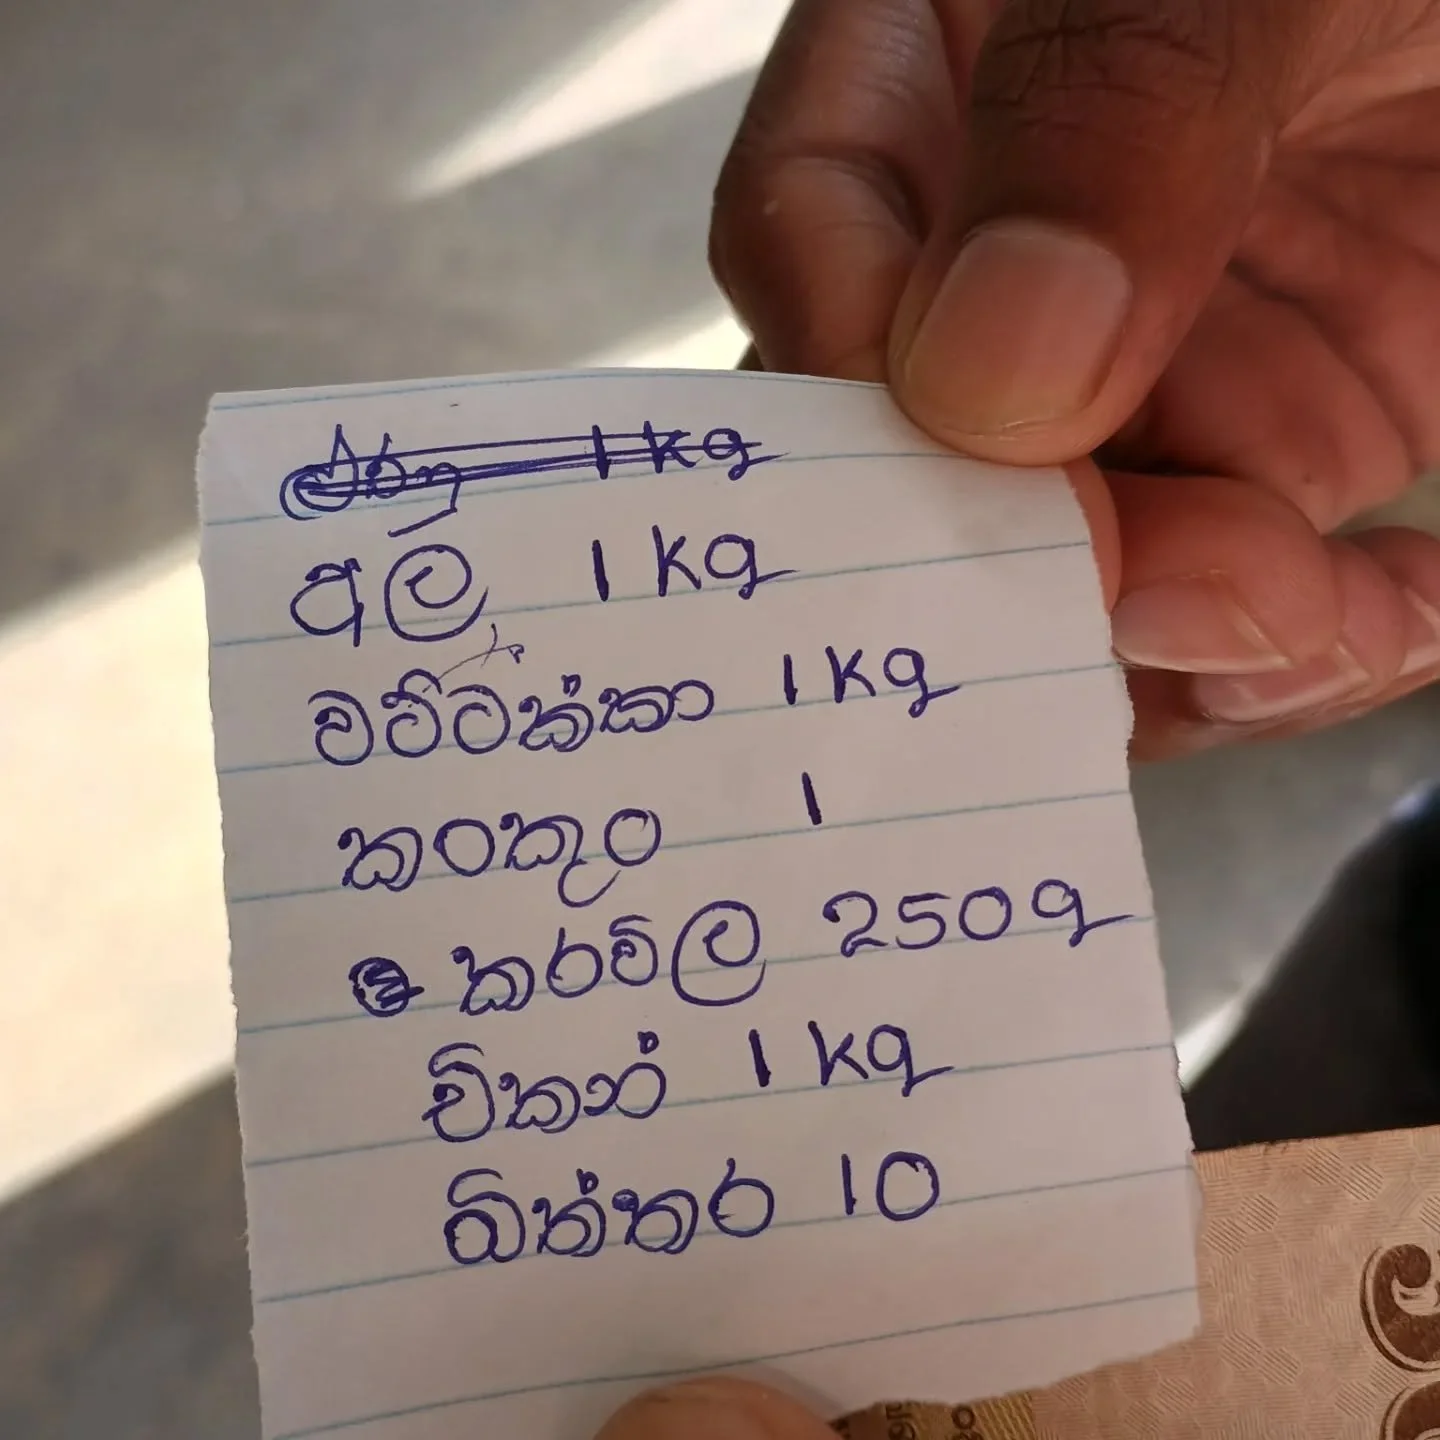 1kg
අල 1kg
වට්ටක්කා 1kg
කංකුං 1
කරවිල 250g
චිකන් 1kg
බිත්තර 10